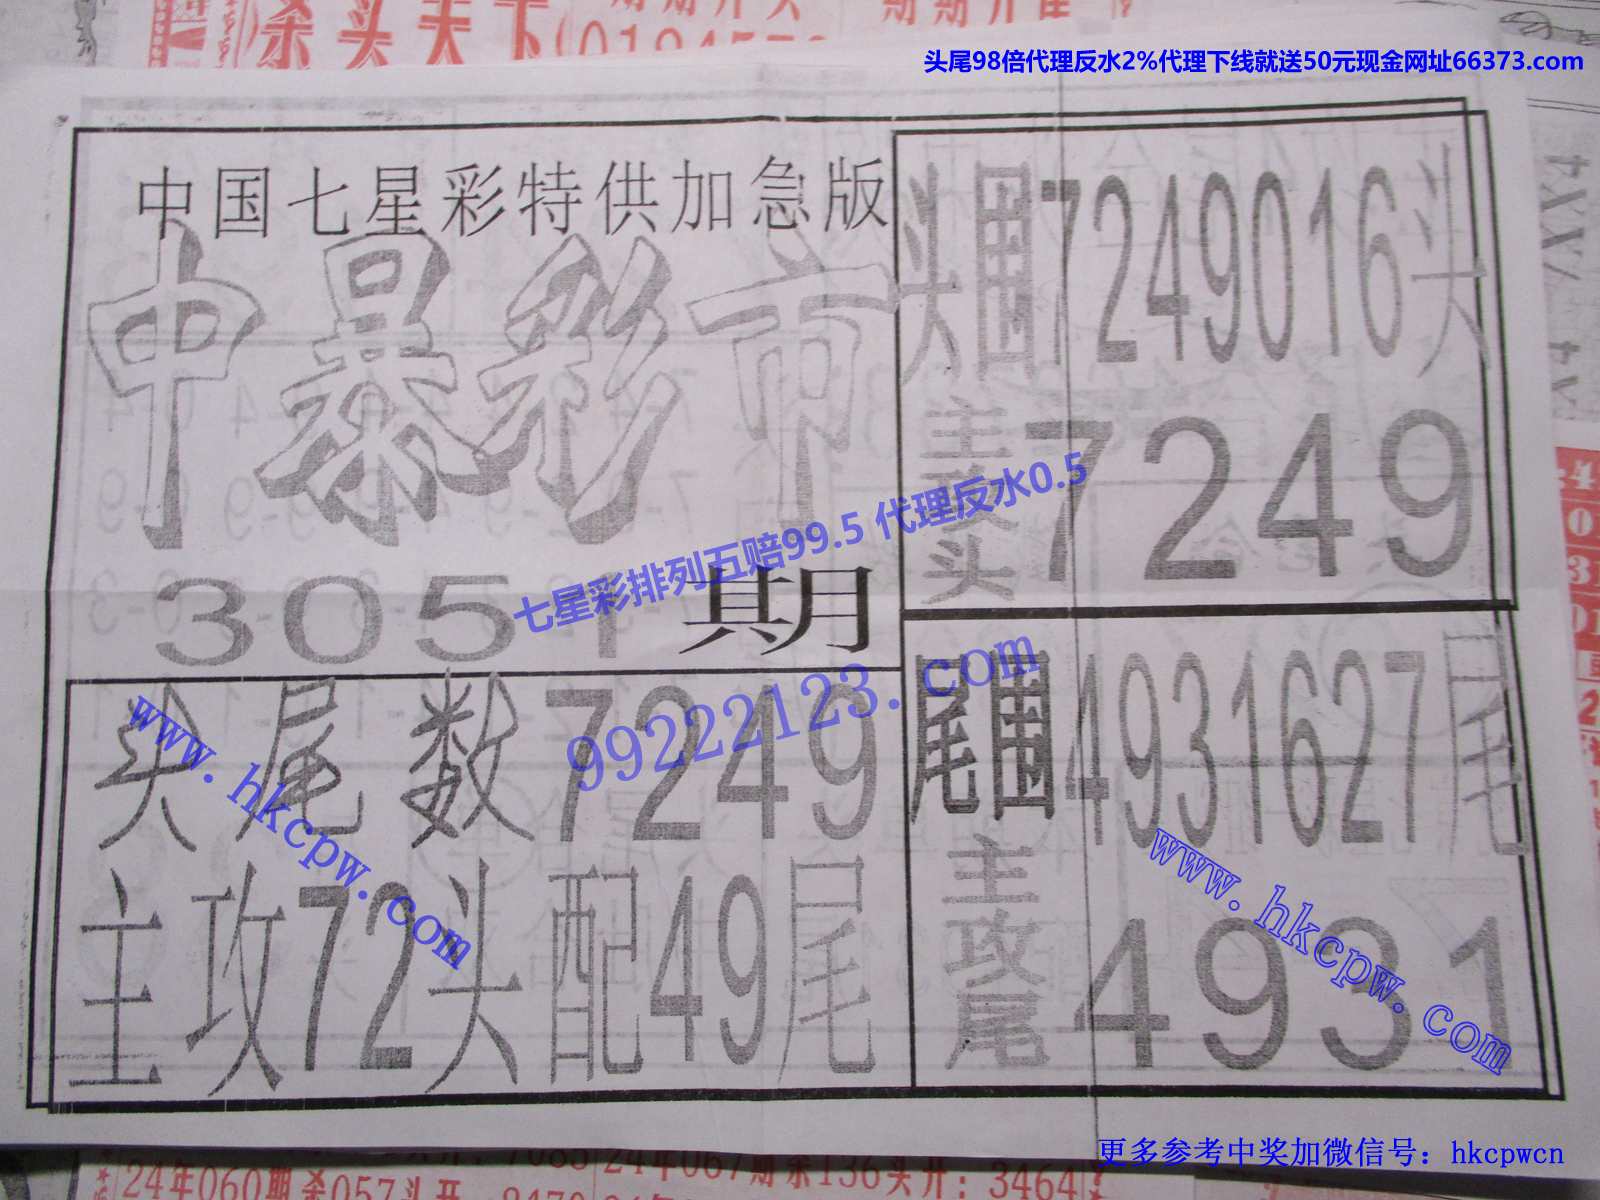 杀头天下
头尾98倍代理反水2%代理下线就送50元现金网址66373.com
中国七星彩特供加急版
中彩市
3051期
七星彩排列五赔99.5 代理反水0.5
99222123.com
头尾数7249
主攻72头配49尾
www.hkcpw.com
头围7249016头
主攻头7249
尾围4931627尾
主攻尾4931
www.hkcpw.com
更多参考中奖加微信号：hkcpwcn
24年060期杀057头开：8470
24年067期杀136头开：3464